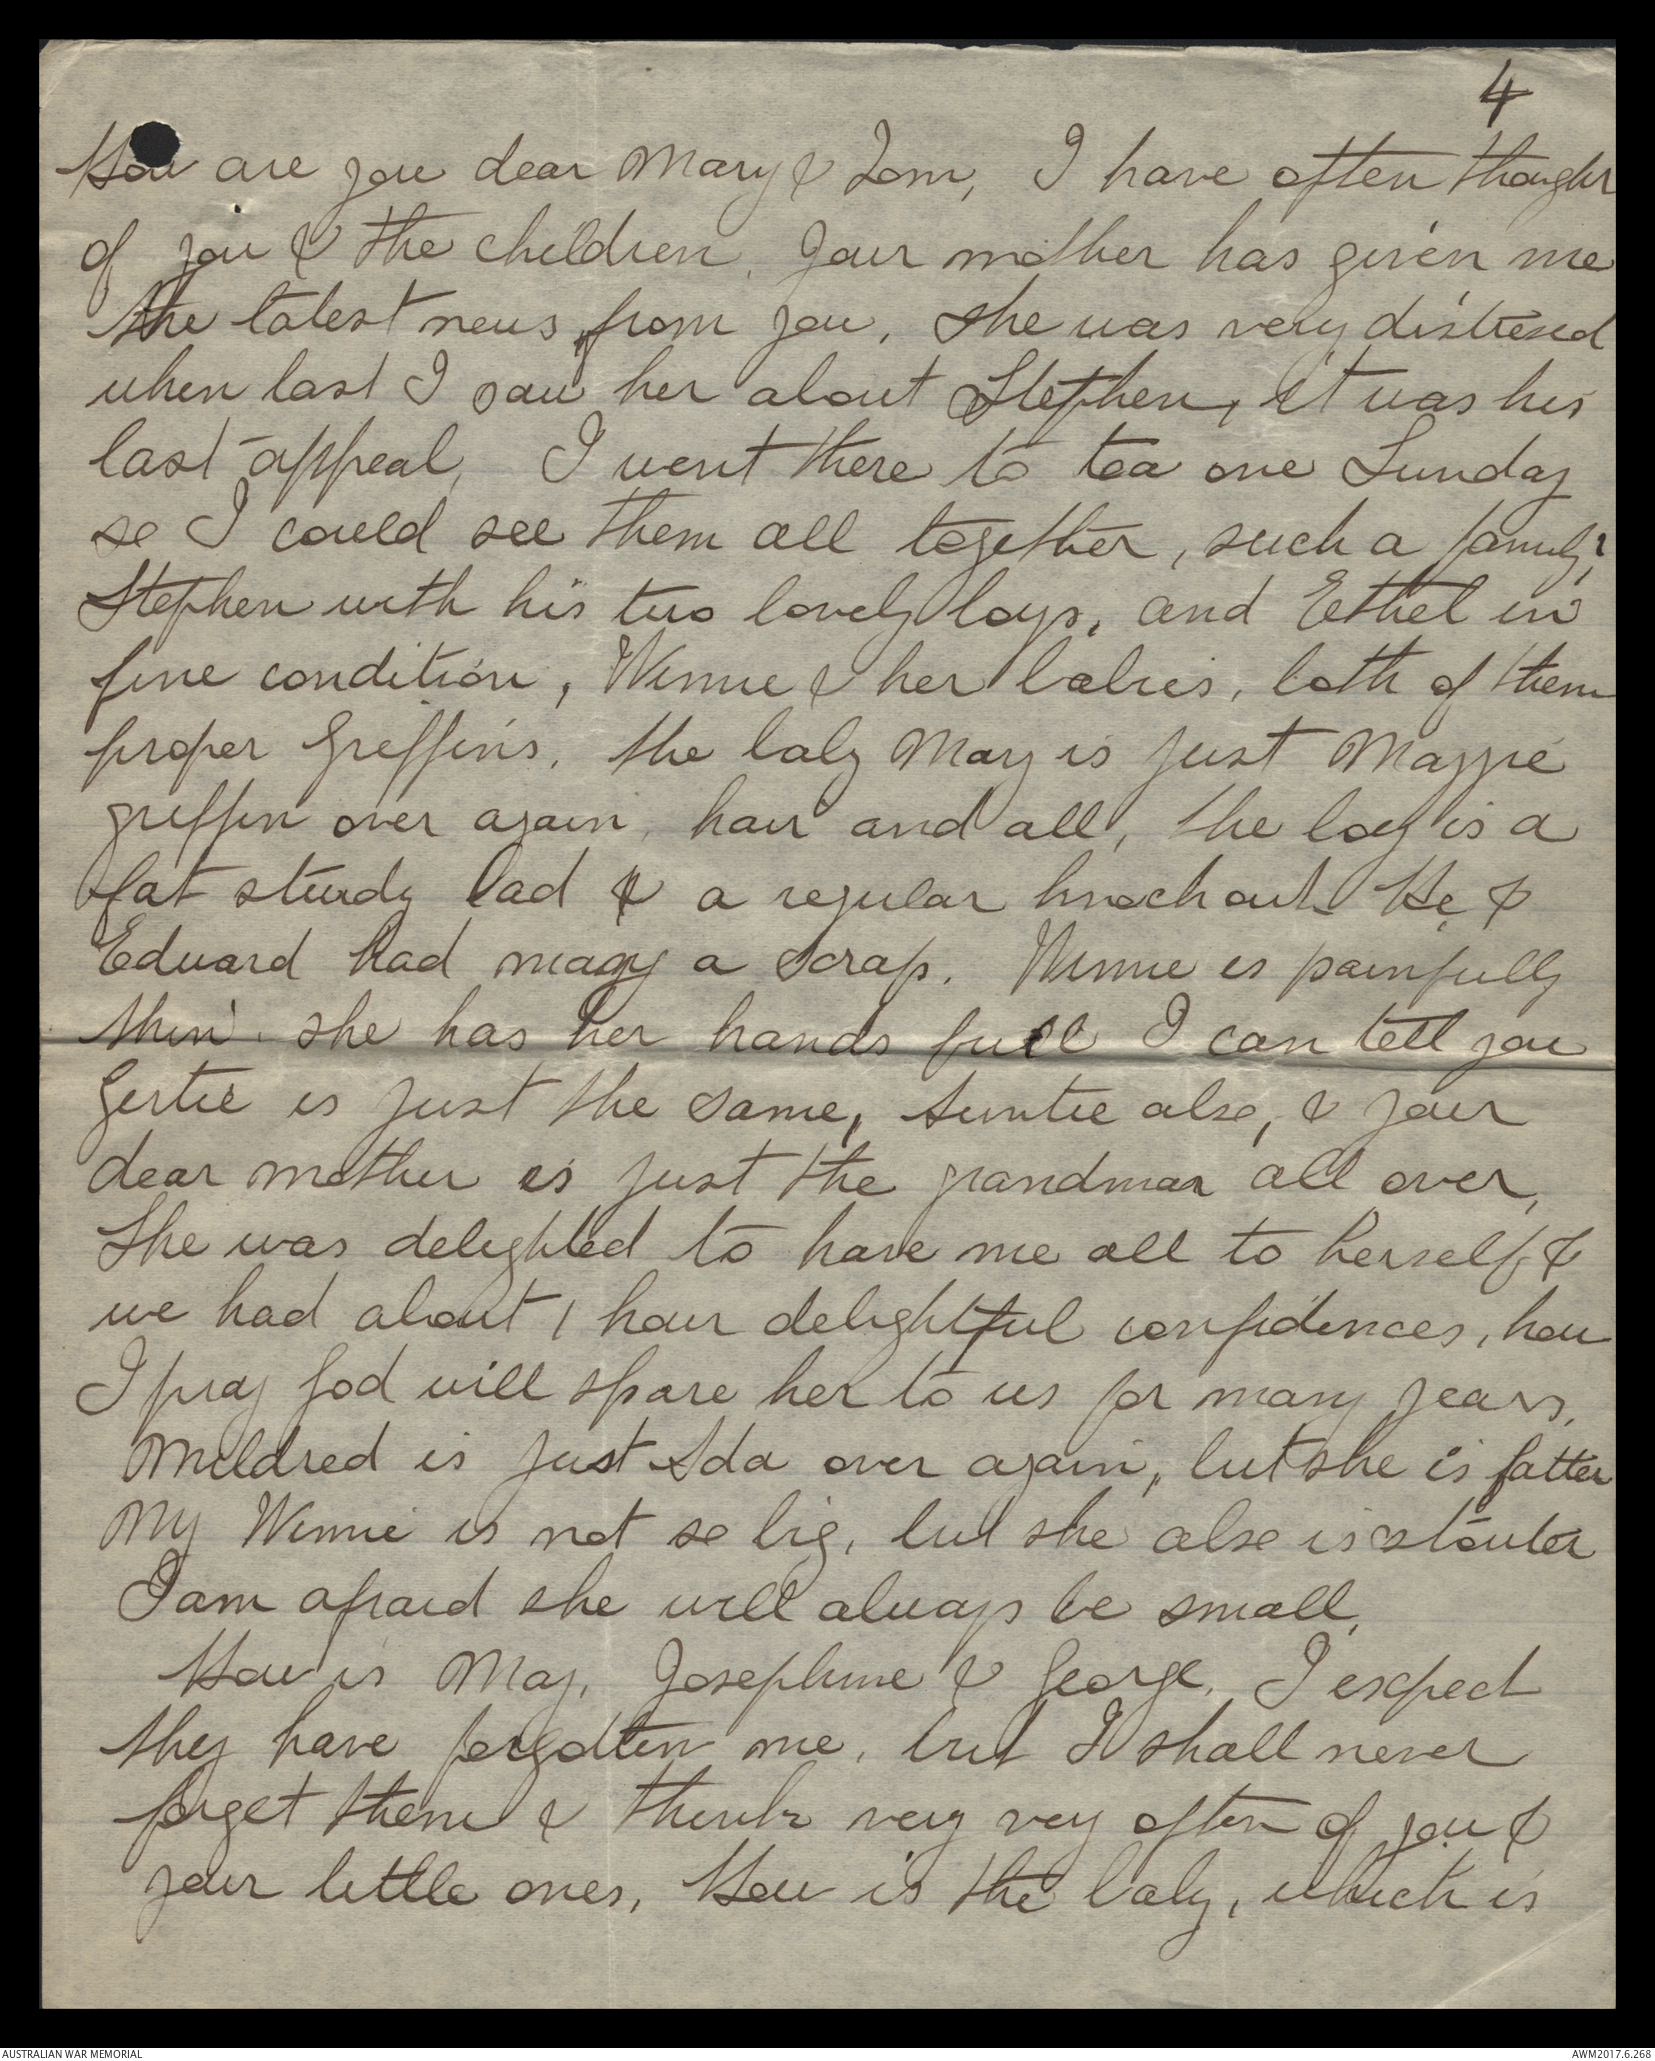 4
How are you dear Mary & Tom, I have often thought
of you & the children. Your mother has given me
the latest news from you. She was very distressed
when last I saw her about Stephen, it was his
last appeal. I went there to tea one Sunday
so I could see them all together, such a family,
Stephen with his two lovely boys, and Ethel in
fine condition, Winnie & her babies, both of them
proper Griffins. The baby Mary is just Maggie
griffin over again, hair and all, the boy is a
fat sturdy lad & a regular knockout. He &
Edward had many a scrap. Winnie is painfully
thin. she has her hands full I can tell you
Gertie is just the same, Auntie also, & your
dear mother is just the grandmar all over,
She was delighted to have me all to herself, &
we had about 1 hour delightful confidences, how
I pray God will spare her to us for many years,
Mildred is just Ida over again, but she is fatter
My Winnie is not so big, but she also is stouter
I am afraid she will always be small,
How is May, Josephine & George, I expect
they have forgotten me, but I shall never
forget them & think very very often of you &
your little ones, How is the baby, which is
AUSTRALIAN WAR MEMORIAL
AWM2017.6.268